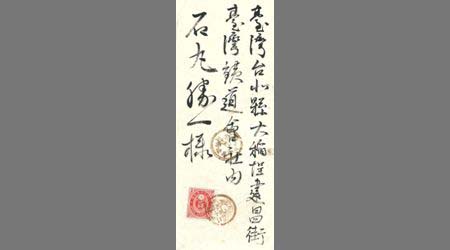 臺灣台北縣大稲埕建昌街
臺灣鉄道會社内
石丸勝一様